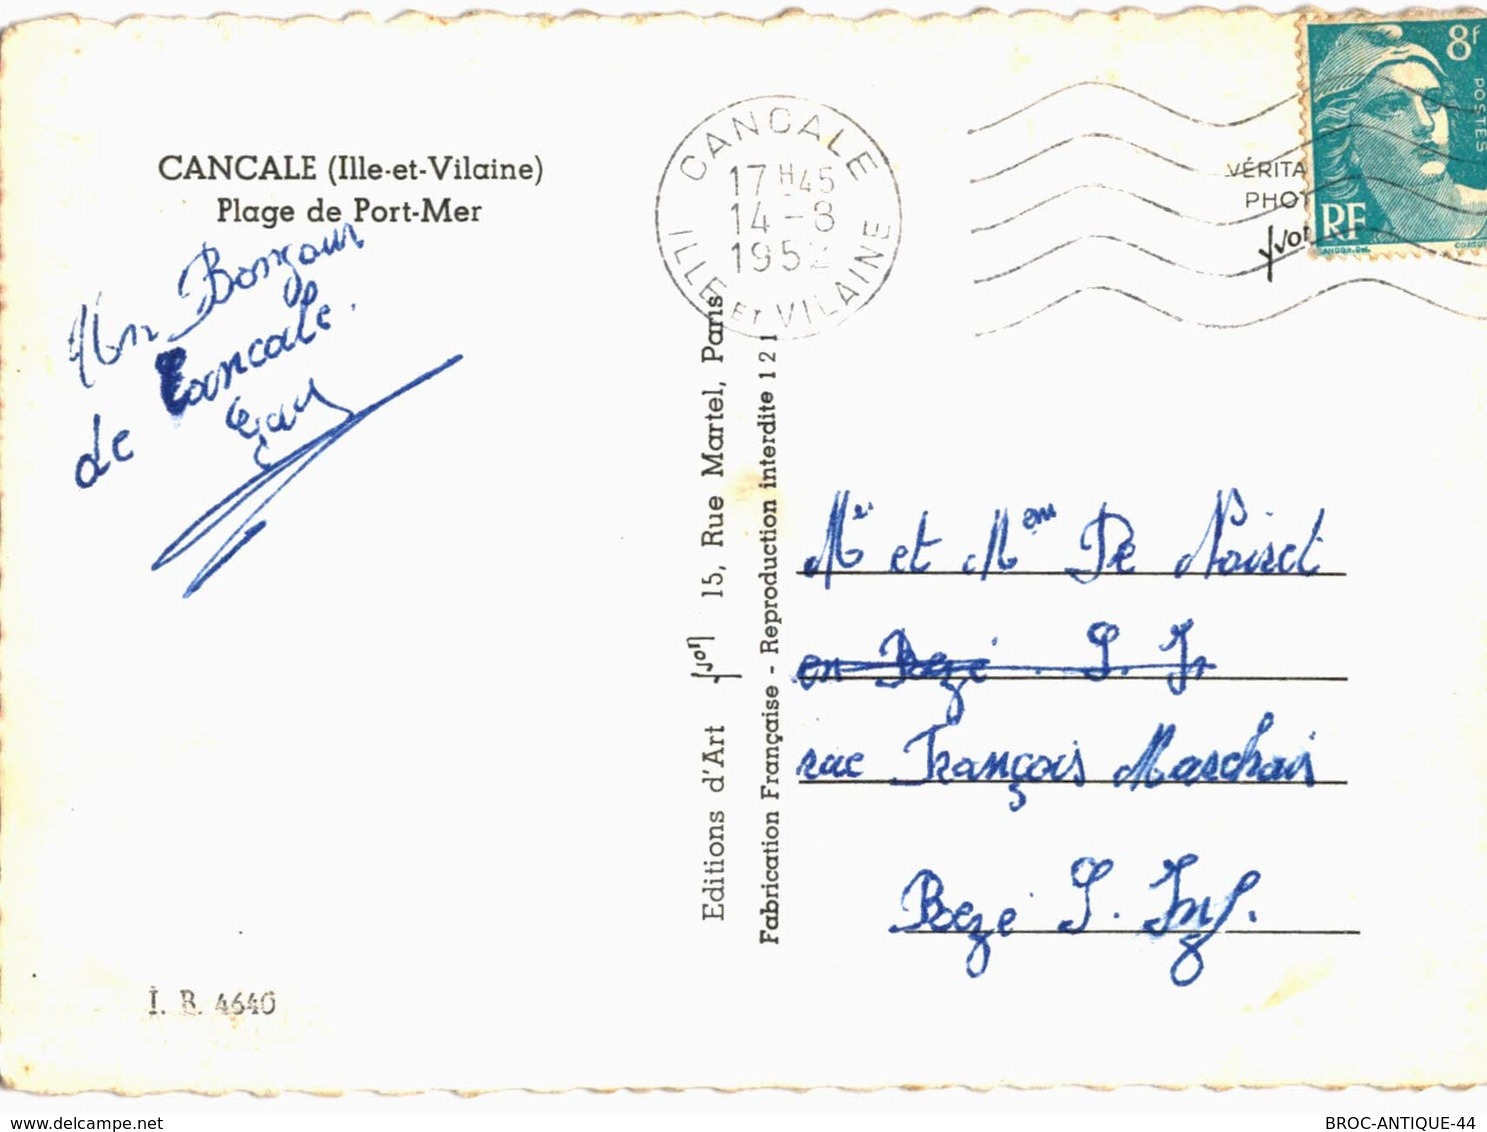 CANCALE (Ille-et-Vilaine)
Plage de Port-Mer
Un Bonjour
de Cancale.
Guy
I. B. 4640
Editions d'Art Yvon 15, Rue Martel, Paris
Fabrication Française - Reproduction interdite 121
CANCALE
17 H45
14-8
1952
ILLE ET VILAINE
VÉRITA
PHOT
Yvon
8f
POSTES
RF
Mr et Mem De Noirct
en Bezé. S. Ir
rue François Marchais
Bezé S. Inf.
delcampe.net
BROC-ANTIQUE-44